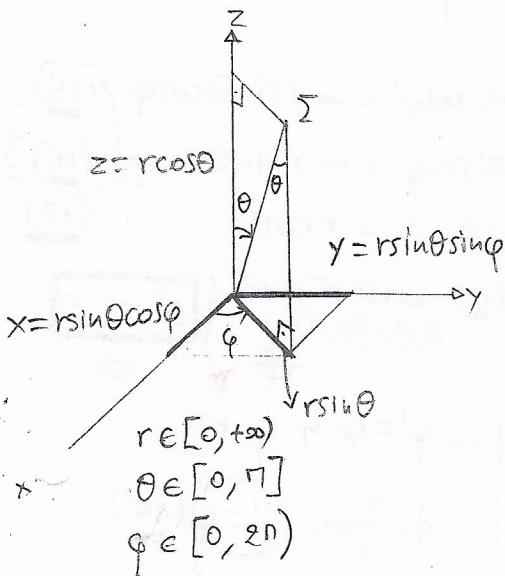 z
Σ
z=rcosθ
θ
θ
y=rsinθsinφ
y
x=rsinθcosφ
φ
rsinθ
r∈[0,+∞)
x
θ∈[0,π]
φ∈[0,2π)